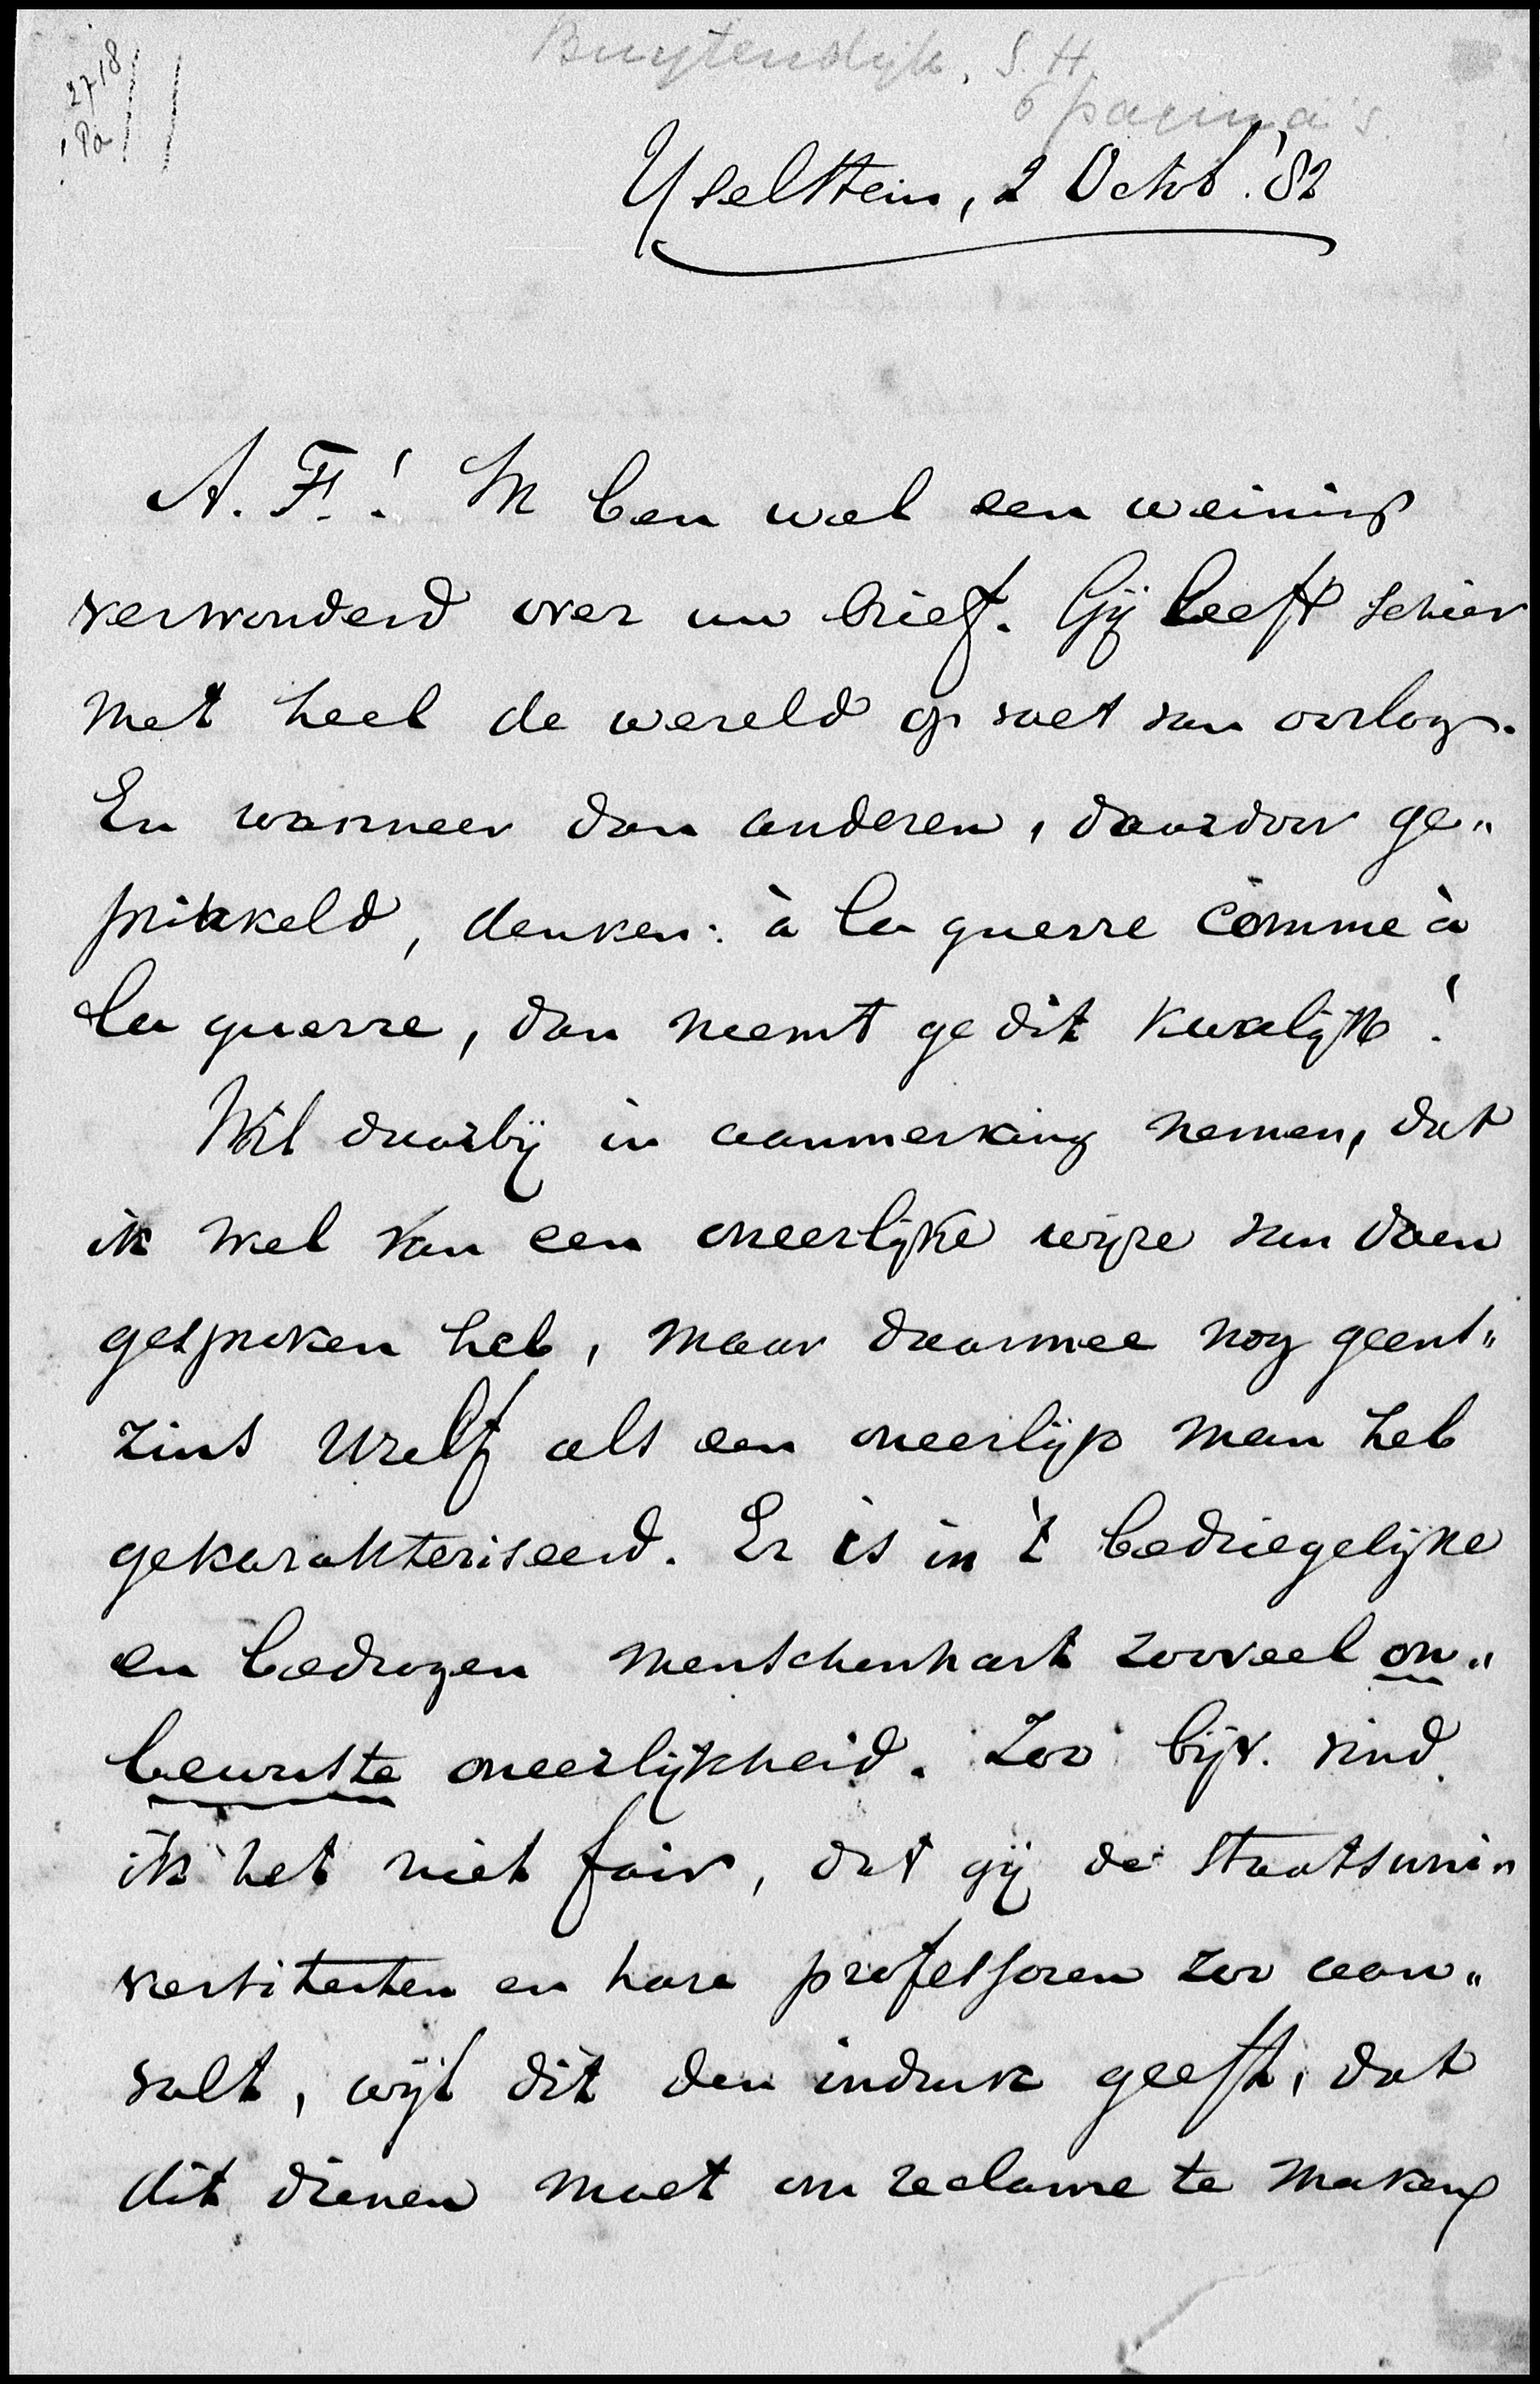 Buytendijk, S. H.
6 pagina's.
2718
Pa
Yselstein, 2 Octob. '82
A. F.! Ik ben wel een weinig
verwonderd over uw brief. Gij leeft schier
met heel de wereld op voet van oorlog.
En wanneer dan anderen, daardoor ge„
prikkeld, denken: à la guerre comme à
la guerre, dan neemt ge dit kwalijk!
Wil daarbij in aanmerking nemen, dat
ik wel van een oneerlijke wijze van doen
gesproken heb, maar daarmee nog geens„
zins Uzelf als een oneerlijk man heb
gekarakteriseerd. Er is in 't bedriegelijke
en bedrogen menschenhart zooveel on„
bewuste oneerlijkheid. Zoo bijv. vind
ik het niet fair, dat gij de Staatsuni„
versiteiten en hare professoren zoo aan„
valt, wijl dit den indruk geeft, dat
dit dienen moet om reclame te maken